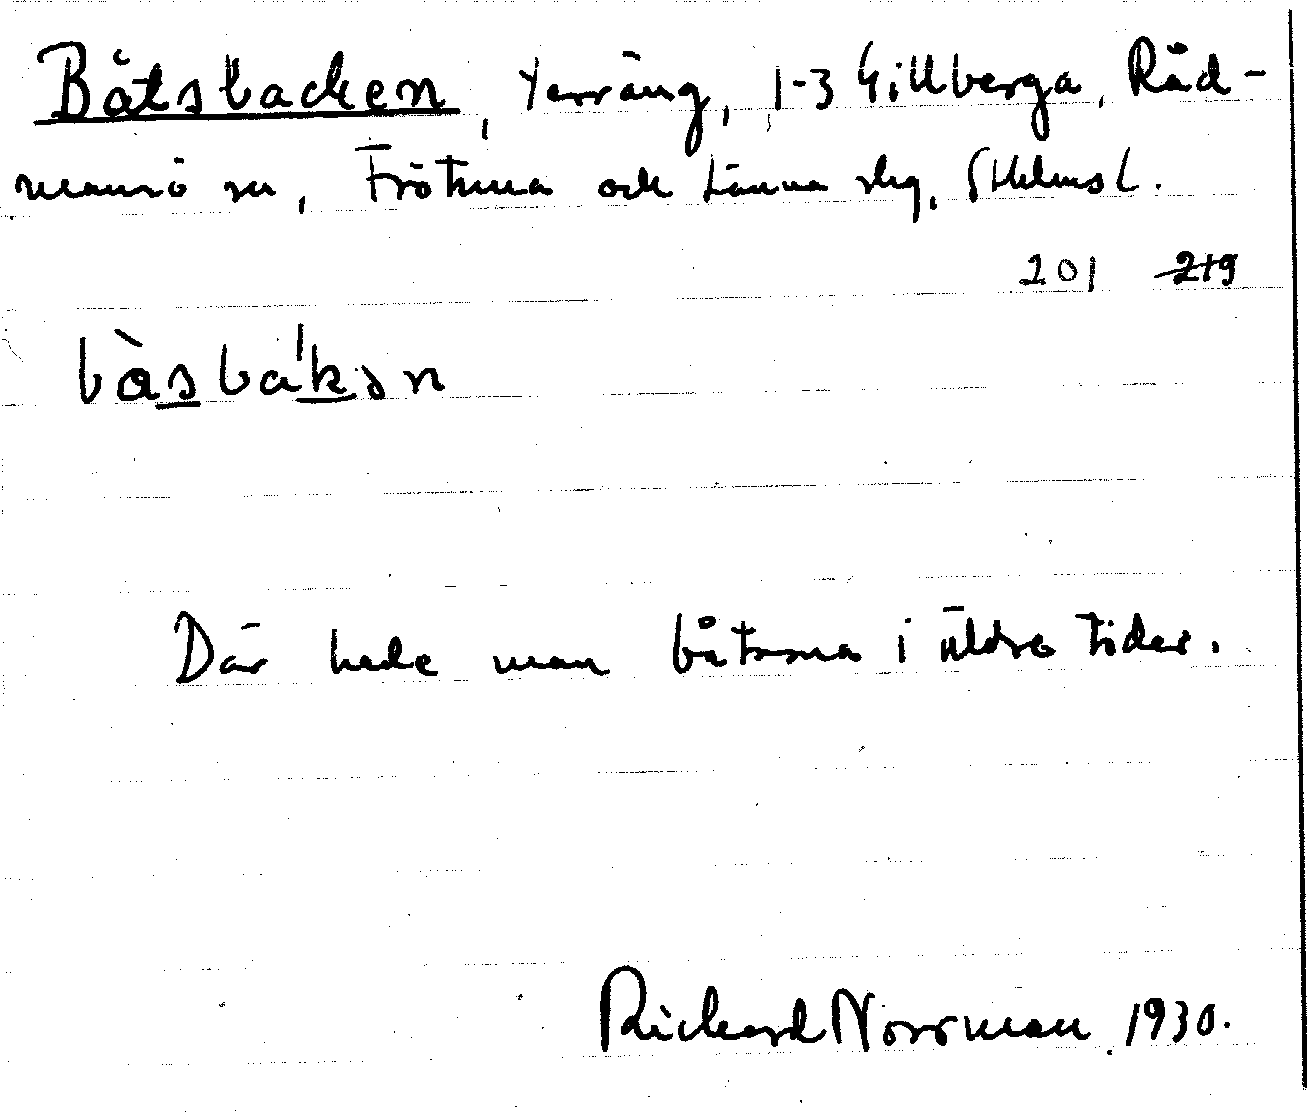 Båtsbacken, terräng, 1-3 Gillberga, Råd-
mansö sn, Frötuna och Länna slg, Sthlms l.
201 219
bàsba'kən
Där hade man båtarna i äldre tider.
Richard Norrman 1930.